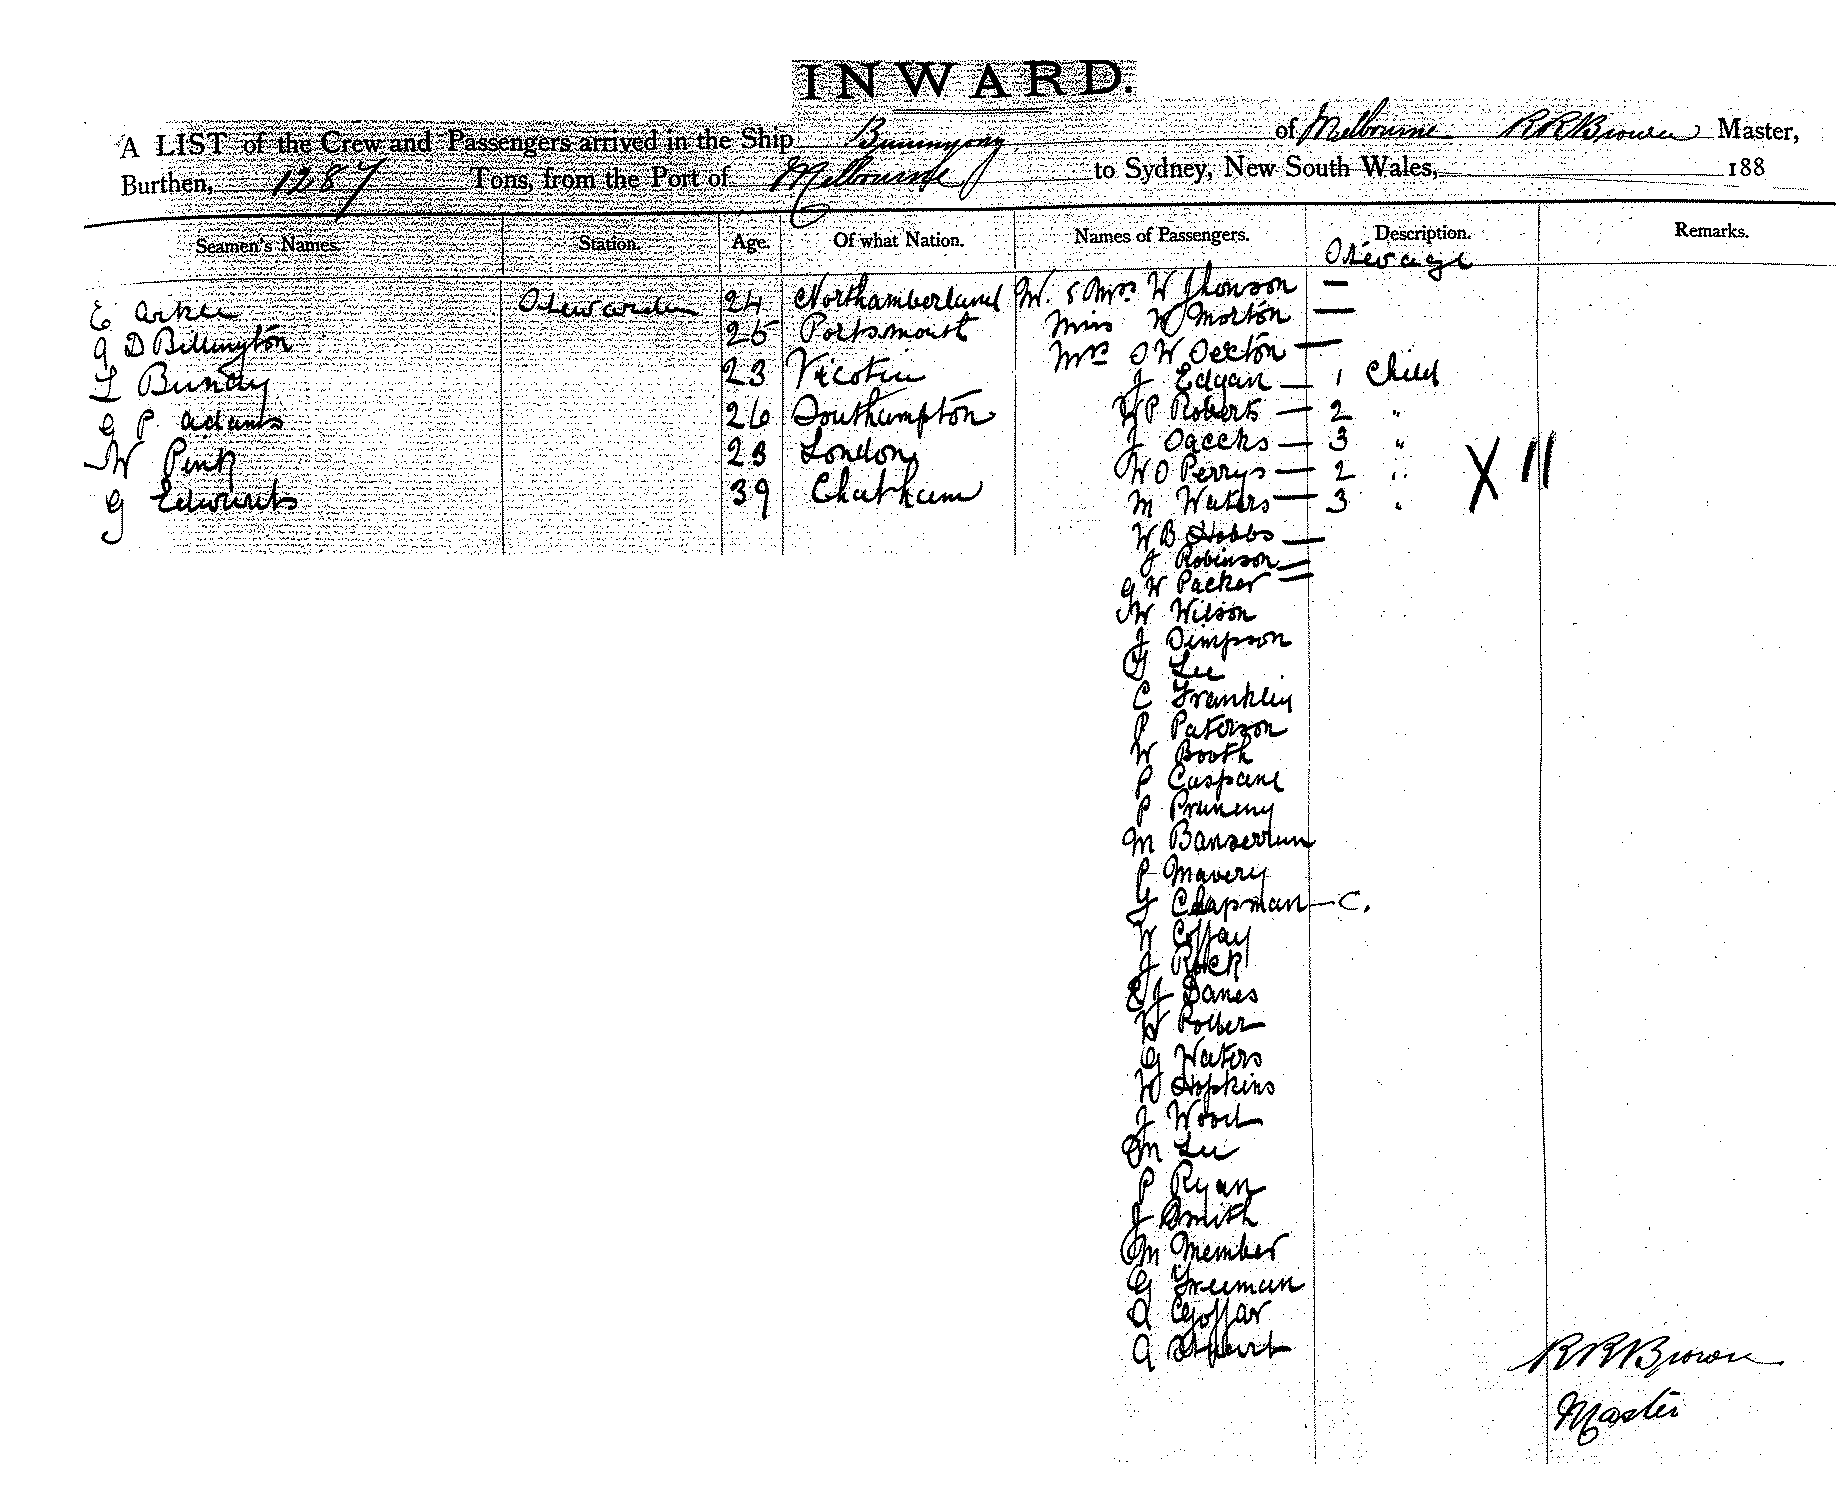 INWARD.
A LIST of the Crew and Passengers arrived in the Ship Buninyong of Melbourne R R Brown Master,
Burthen, 1287 Tons, from the Port of Melbourne to Sydney, New South Wales, 188
Seamen's Names. Station. Age. Of what Nation. Names of Passengers. Description. Remarks.
Steerage
E 24 Northamberland M. & Mrs W —
G D Billington 25 Portsmouth Miss W Morton —
L Bundy 23 Mrs —
G P Adams 26 Southampton J Edgan — 1 Child
W Pink 23 London W P Roberts — 2 "
G 39 Chatham J — 3 "
W O Perrys — 2 " X 11
M Waters — 3 "
W B Hobbs —
J Robinson —
G W Packer —
W Wilson
J Simpson
G Lee
C Franklin
P Paterson
W Booth
P
P
M
P Mavery
J Chapman — C.
W Coffay
J Rock
E J Danes
W
G Waters
W Hopkins
J Wood
M Lee
P Ryan
J Smith
M Member
G Freeman
A
A
R R Brown
Master